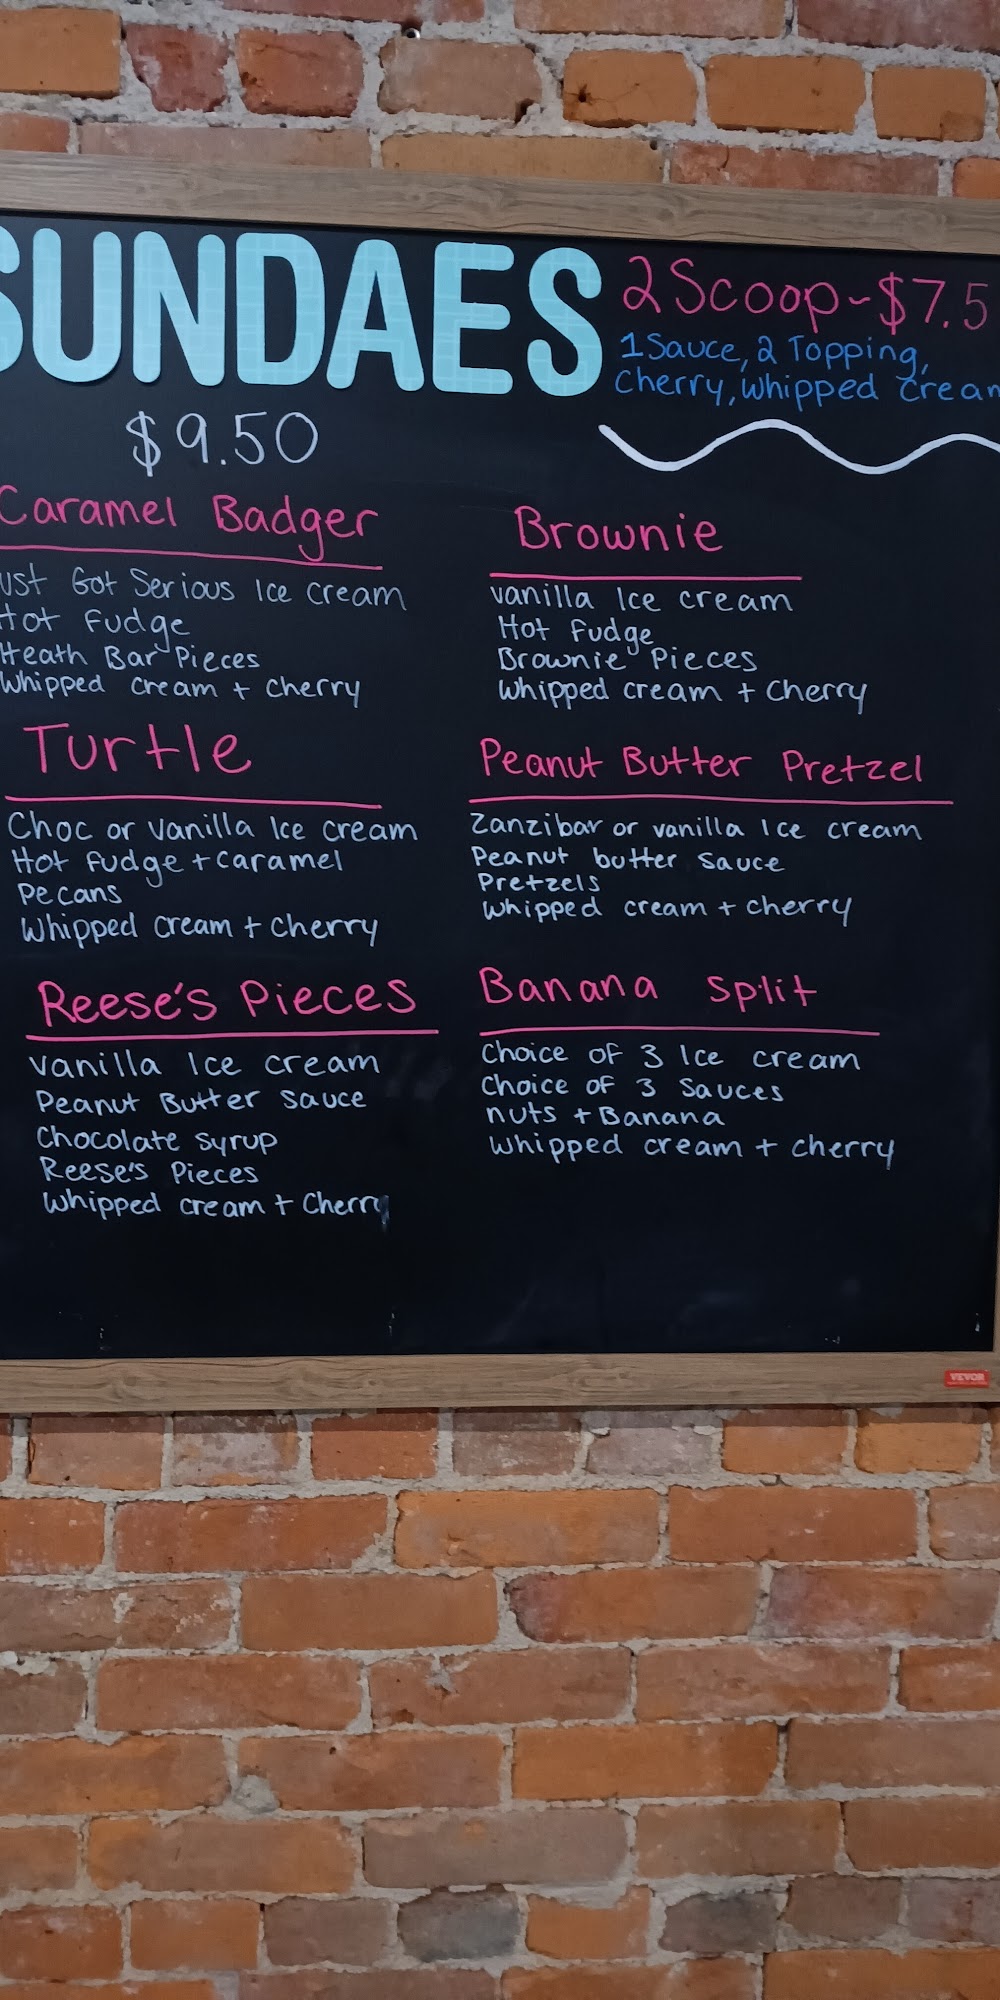 SUNDAES
$9.50
2 Scoop ~ $7.5
1 Sauce, 2 Topping,
Cherry, Whipped Crean
Caramel Badger
ust Got Serious Ice cream
Hot Fudge
Heath Bar Pieces
Whipped cream + cherry
Brownie
vanilla Ice cream
Hot fudge
Brownie Pieces
Whipped cream + cherry
Turtle
Choc or vanilla Ice cream
Hot fudge + caramel
Pecans
Whipped cream + cherry
Peanut Butter Pretzel
Zanzibar or vanilla Ice cream
Peanut butter sauce
Pretzels
Whipped cream + cherry
Reese's Pieces
Vanilla Ice cream
Peanut Butter Sauce
Chocolate syrup
Reese's Pieces
Whipped cream + Cherry
Banana Split
Choice of 3 Ice cream
Choice of 3 Sauces
nuts + Banana
Whipped cream + cherry
VEVOR